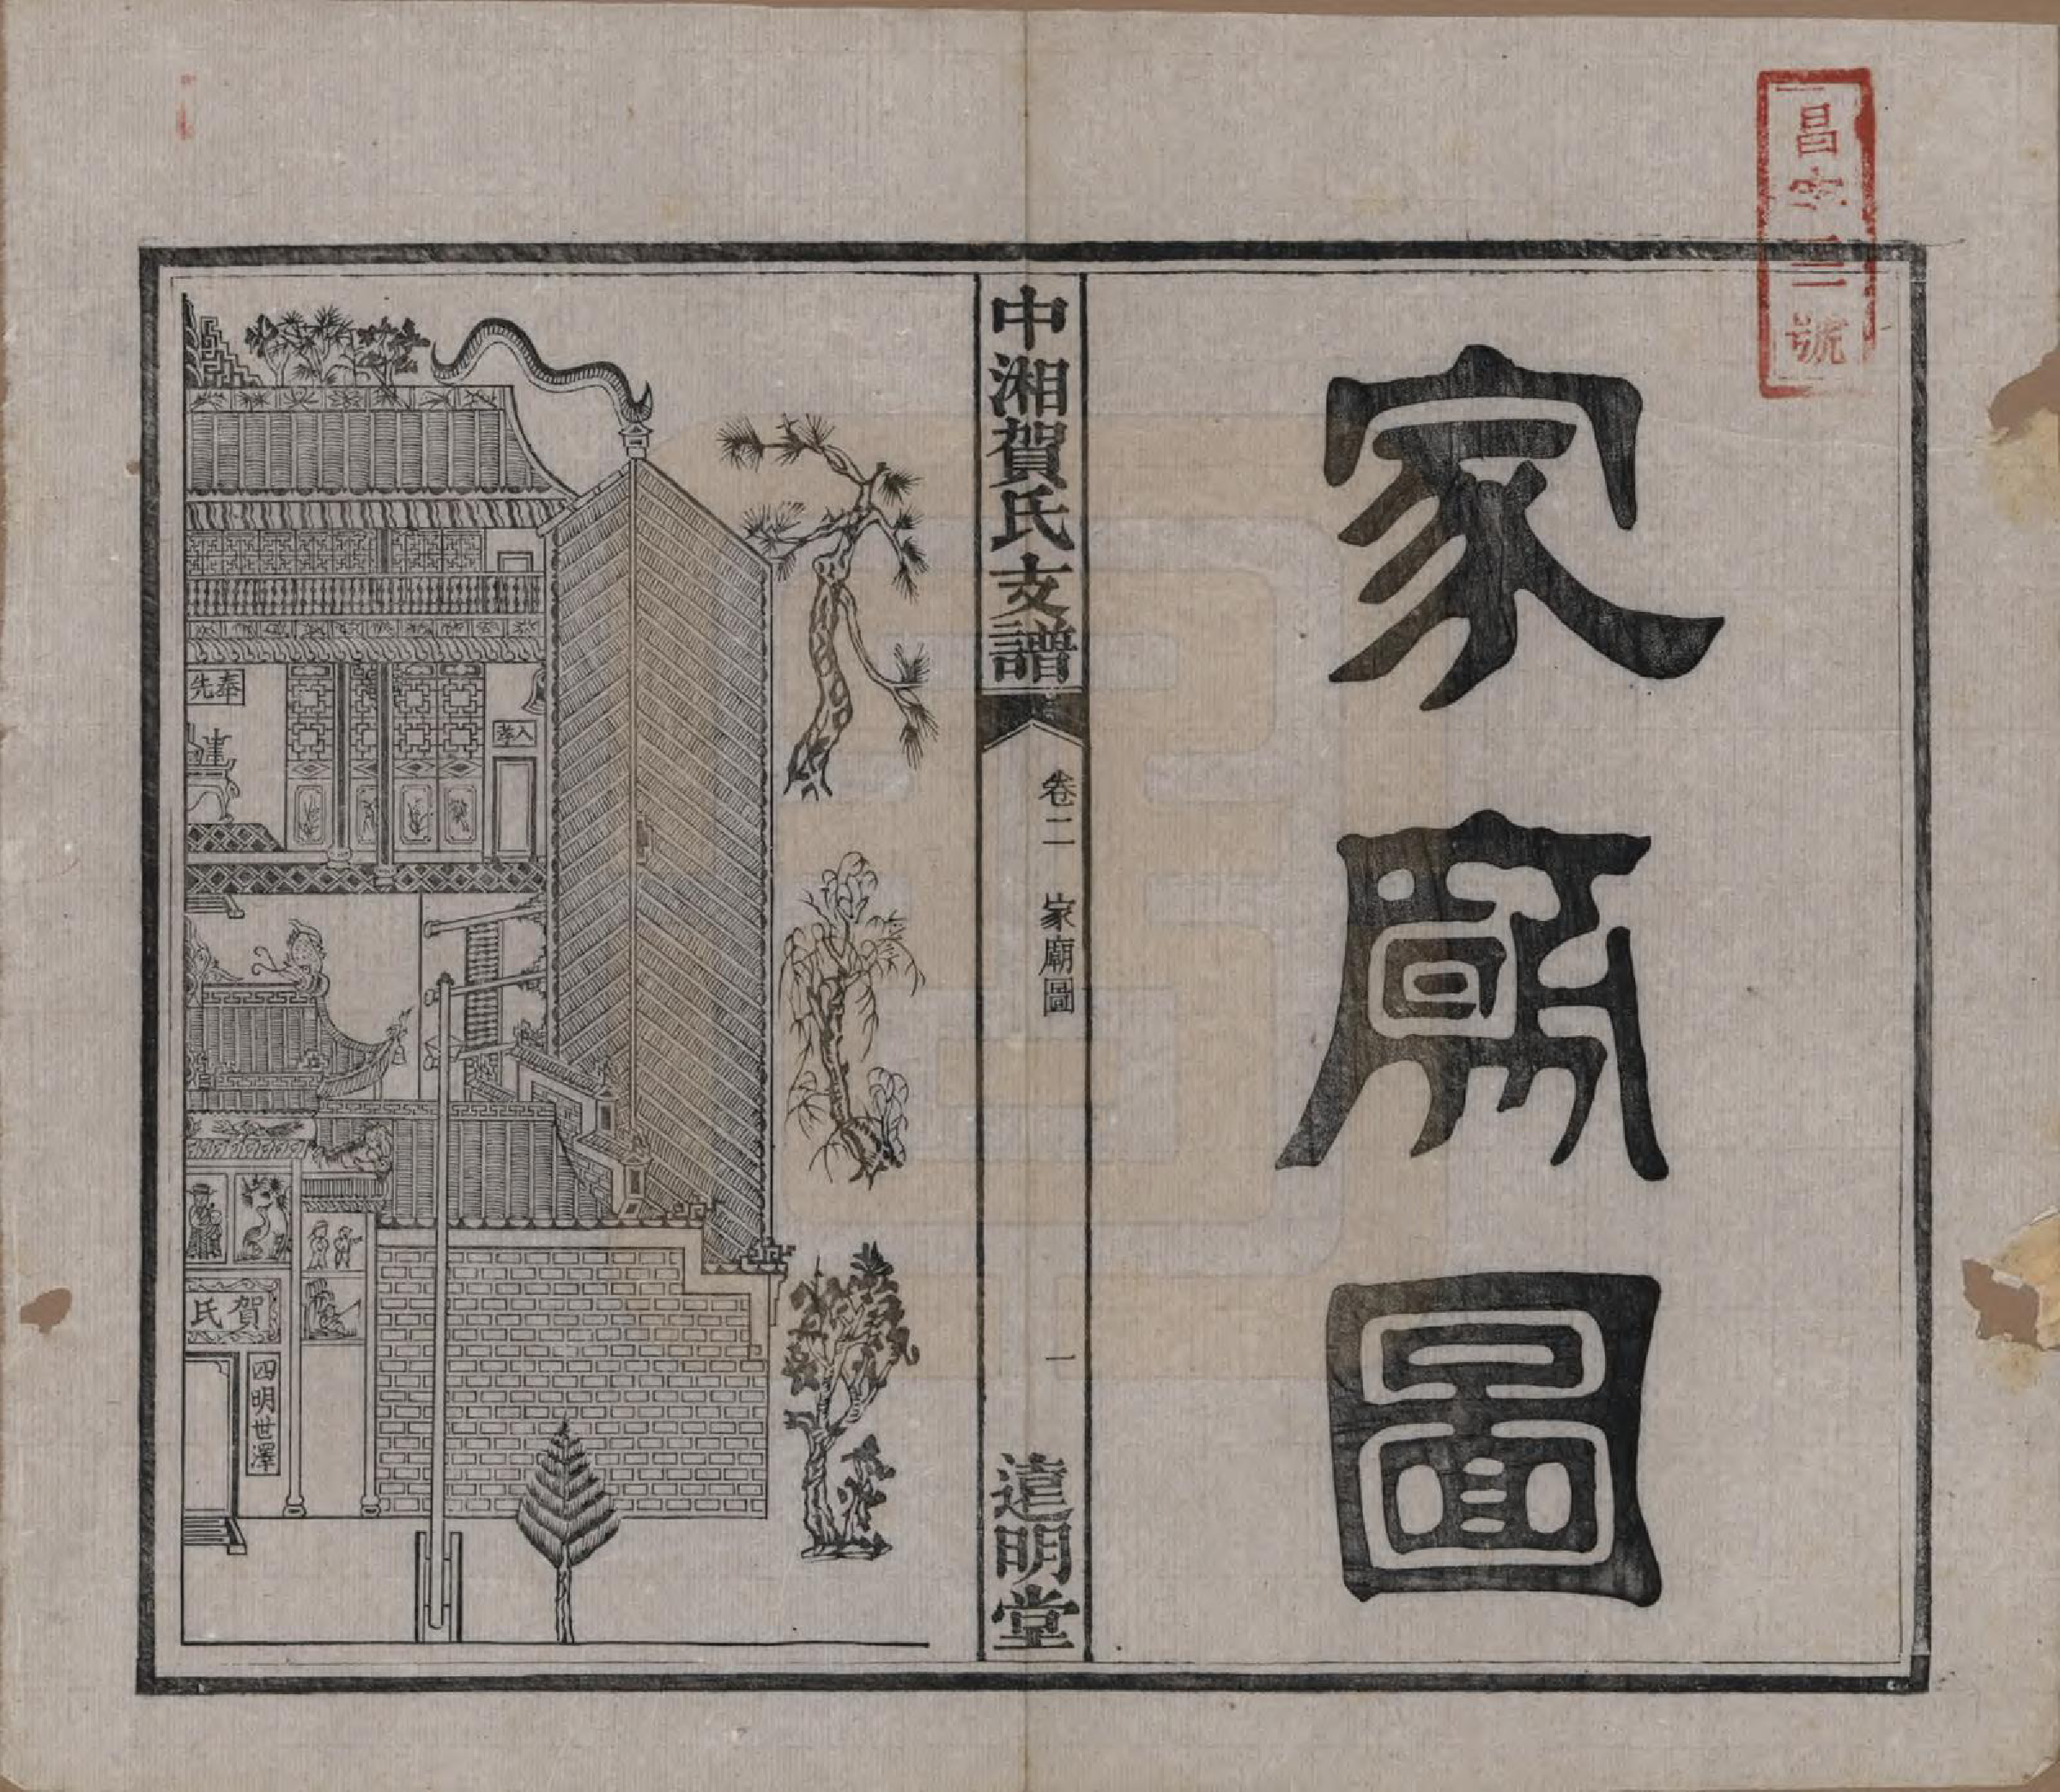 昌字三號
家廟圖
中湘賀氏支譜
卷二 家廟圖
一
遠明堂
奉先
入孝
賀氏
四明世澤